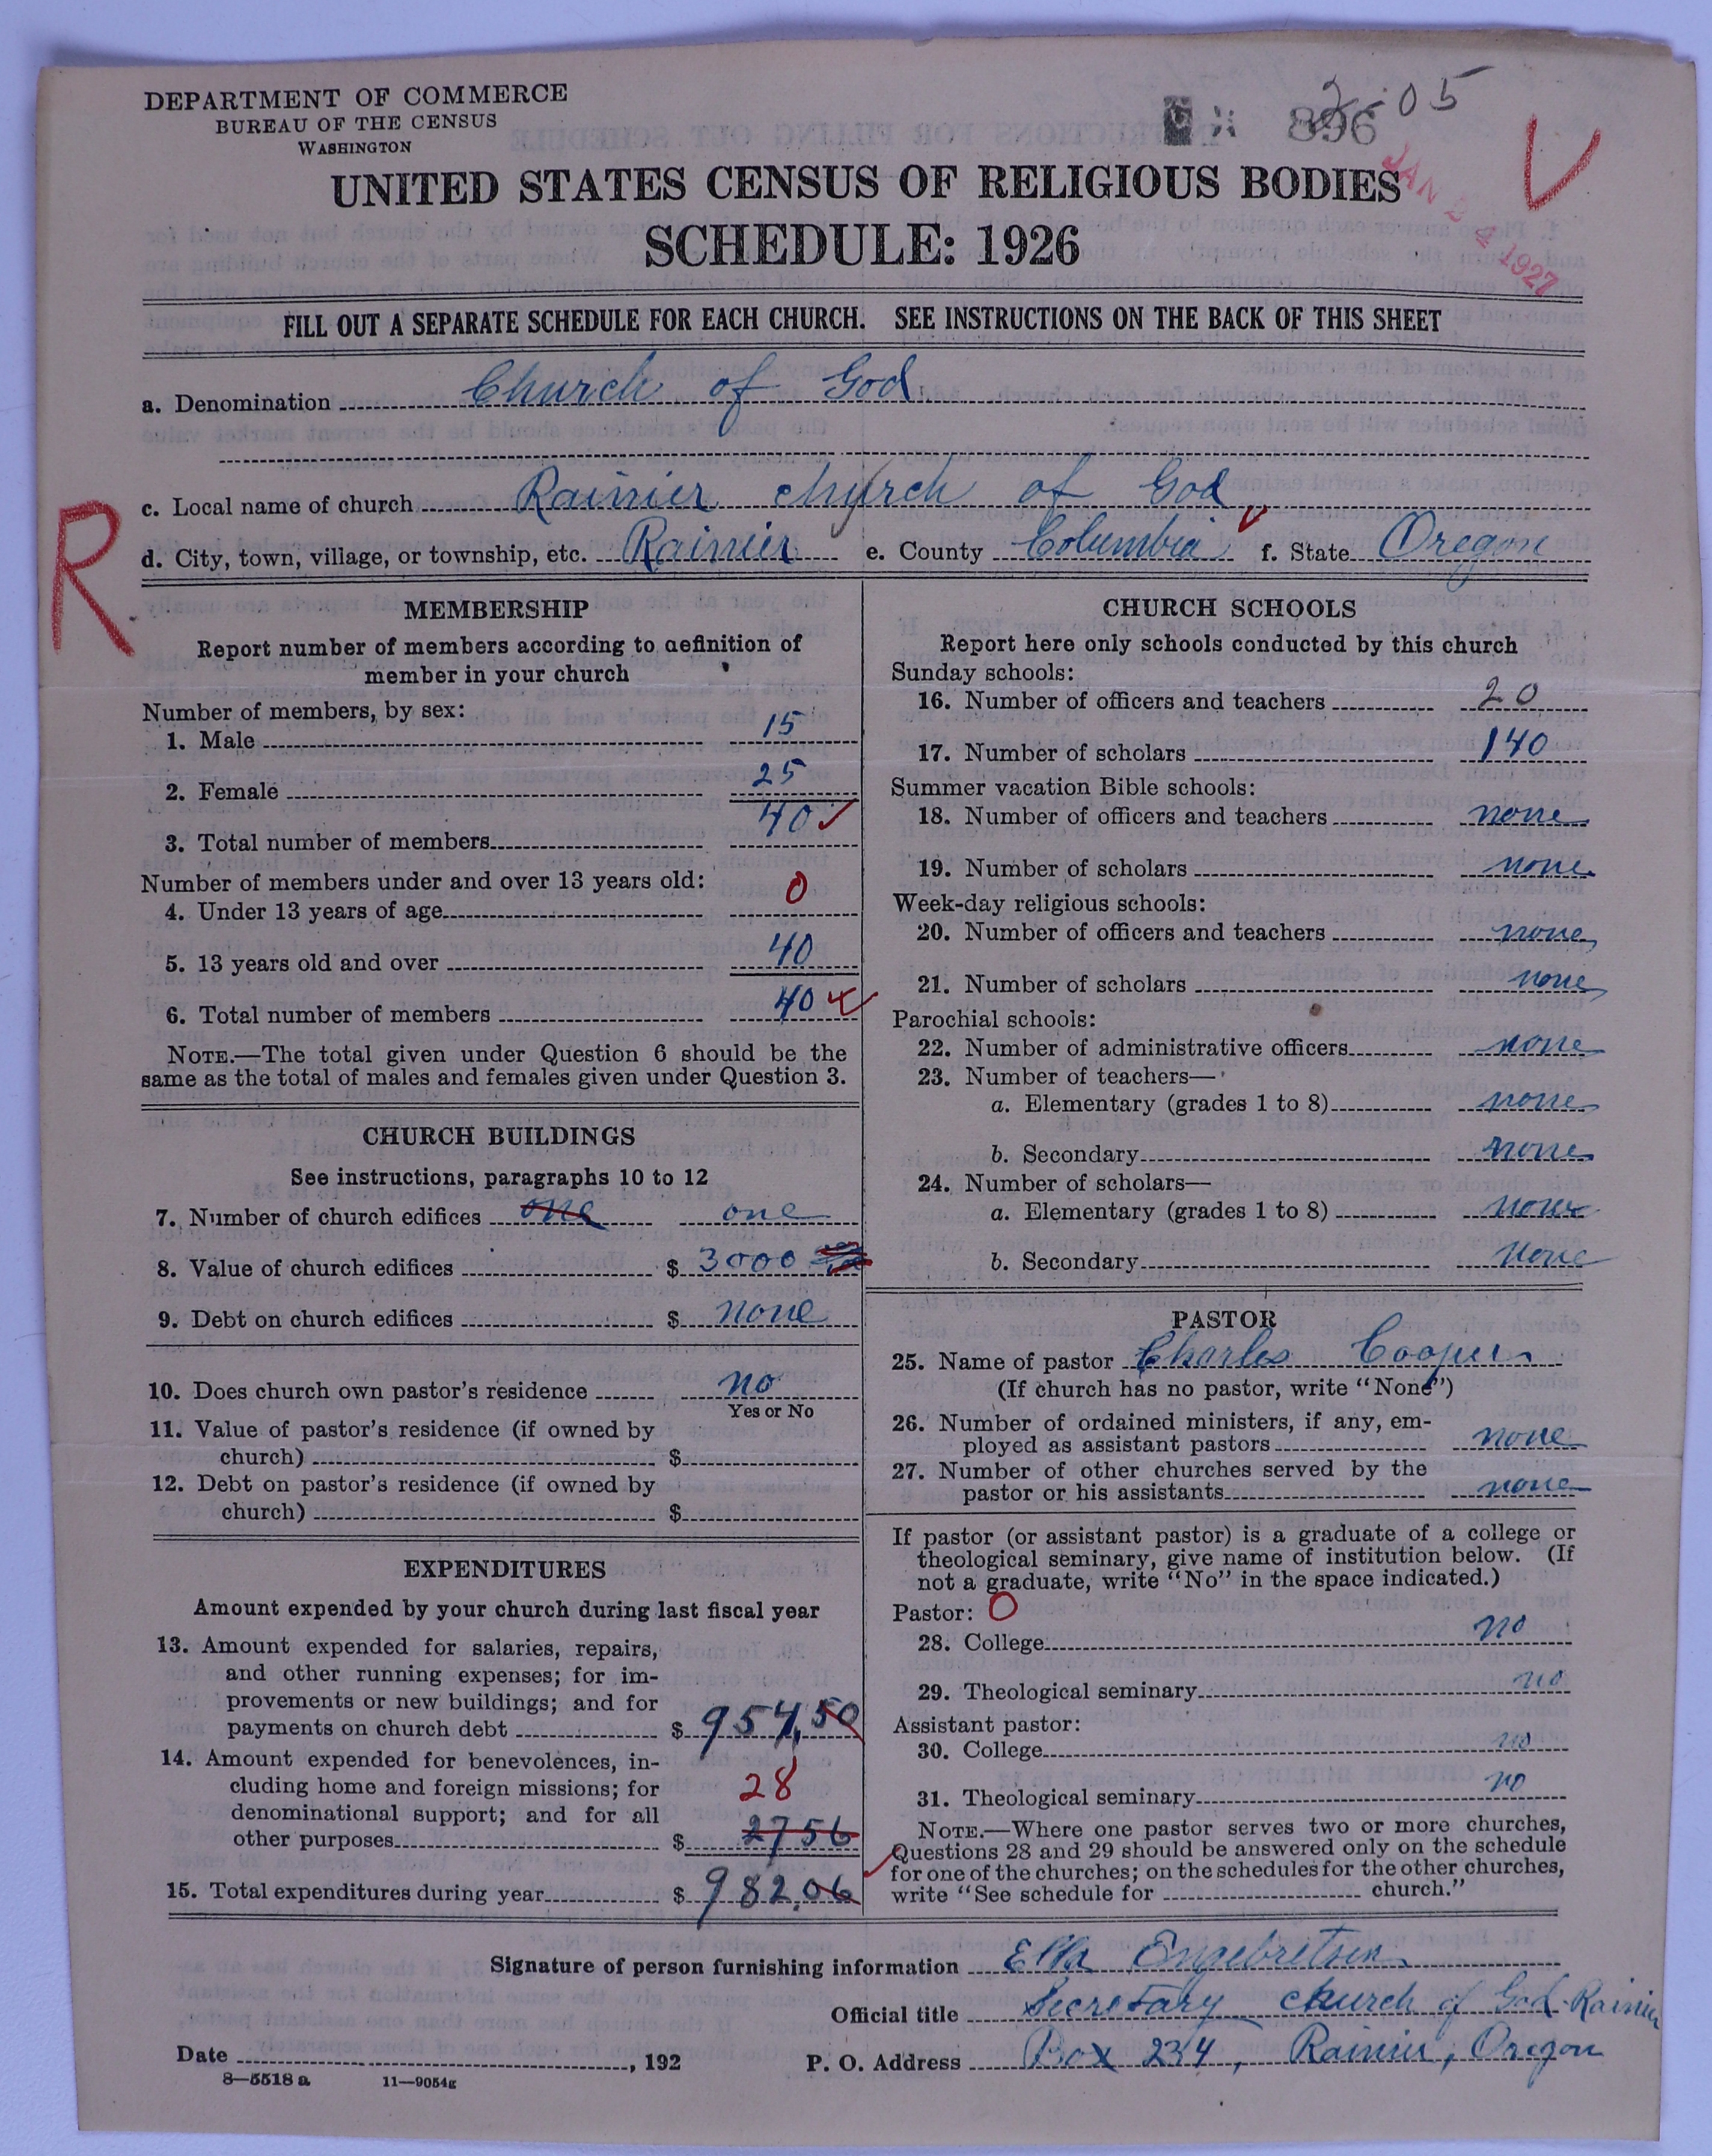 DEPARTMENT OF COMMERCE
BUREAU OF THE CENSUS
WASHINGTON
2-05
896
JAN 24 1927
UNITED STATES CENSUS OF RELIGIOUS BODIES
SCHEDULE: 1926
FILL OUT A SEPARATE SCHEDULE FOR EACH CHURCH. SEE INSTRUCTIONS ON THE BACK OF THIS SHEET
a. Denomination Church of God
c. Local name of church Rainier church of God
R
d. City, town, village, or township, etc. Rainier e. County Columbia f. State Oregon
MEMBERSHIP
Report number of members according to definition of
member in your church
Number of members, by sex:
1. Male 15
2. Female 25
3. Total number of members 40
Number of members under and over 13 years old:
4. Under 13 years of age 0
5. 13 years old and over 40
6. Total number of members 40
NOTE.—The total given under Question 6 should be the
same as the total of males and females given under Question 3.
CHURCH BUILDINGS
See instructions, paragraphs 10 to 12
7. Number of church edifices one one
8. Value of church edifices $ 3000
9. Debt on church edifices $ none
10. Does church own pastor's residence no
Yes or No
11. Value of pastor's residence (if owned by
church) $
12. Debt on pastor's residence (if owned by
church) $
EXPENDITURES
Amount expended by your church during last fiscal year
13. Amount expended for salaries, repairs,
and other running expenses; for im-
provements or new buildings; and for
payments on church debt $ 954.50
14. Amount expended for benevolences, in-
cluding home and foreign missions; for
28
denominational support; and for all
other purposes $ 27 56
15. Total expenditures during year $ 982.06
CHURCH SCHOOLS
Report here only schools conducted by this church
Sunday schools:
16. Number of officers and teachers 20
17. Number of scholars 140
Summer vacation Bible schools:
18. Number of officers and teachers none
19. Number of scholars none
Week-day religious schools:
20. Number of officers and teachers none
21. Number of scholars none
Parochial schools:
22. Number of administrative officers none
23. Number of teachers—
a. Elementary (grades 1 to 8) none
b. Secondary none
24. Number of scholars—
a. Elementary (grades 1 to 8) none
b. Secondary none
PASTOR
25. Name of pastor Charles Cooper
(If church has no pastor, write "None")
26. Number of ordained ministers, if any, em-
ployed as assistant pastors none
27. Number of other churches served by the
pastor or his assistants none
If pastor (or assistant pastor) is a graduate of a college or
theological seminary, give name of institution below. (If
not a graduate, write "No" in the space indicated.)
Pastor: 0
28. College no
29. Theological seminary no
Assistant pastor:
30. College no
31. Theological seminary no
NOTE.—Where one pastor serves two or more churches,
Questions 28 and 29 should be answered only on the schedule
for one of the churches; on the schedules for the other churches,
write "See schedule for church."
Signature of person furnishing information Ella Engebretsen
Official title Secretary church of God Rainier
Date , 192 P. O. Address Box 234, Rainier, Oregon
8—5518 a 11—9054g